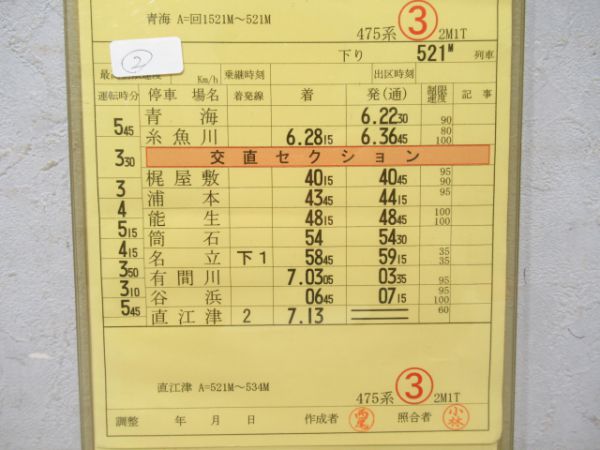 青海 A=回1521M～521M
475系 ③ 2M1T
下り 521M 列車
②
Km/h 乗継時刻 出区時刻
運転時分 停車場名 着発線 着 発(通) 制限速度 記事
青海 6.22 30 90
5 45
糸魚川 6.28 15 6.36 45 80 100
交直セクション
3 30
梶屋敷 40 15 40 45 95 90
3
浦本 43 45 44 15 95
4
能生 48 15 48 45 100 100
5 15
筒石 54 54 30
4 15
名立 下1 58 45 59 15 35 35
3 50
有間川 7.03 05 03 35 95
3 10
谷浜 06 45 07 15 95 100
5 45
直江津 2 7.13 60
直江津 A=521M～534M
475系 ③ 2M1T
調整 年 月 日 作成者 照合者 小林